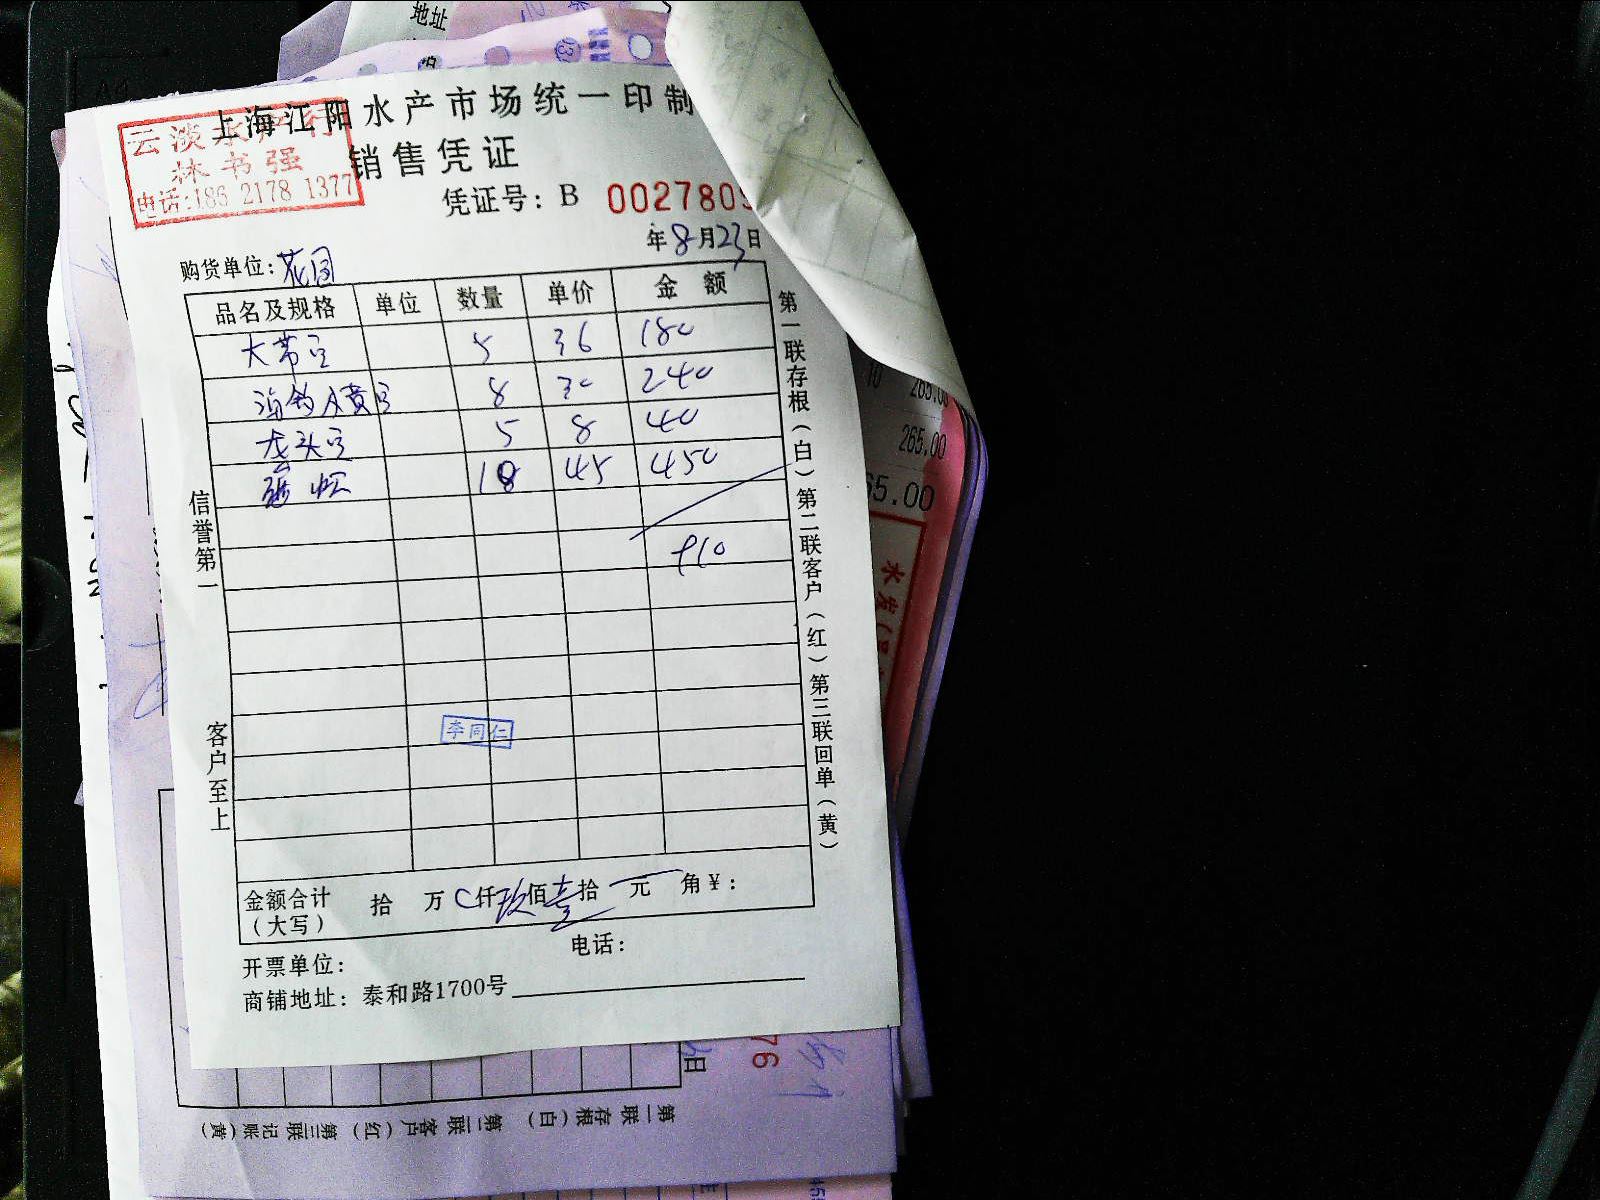 地址
上海江阳水产市场统一印制
云淡水产行
林书强
电话:186 2178 1377
销售凭证
凭证号: B 002780
年8月23日
购货单位:花园
品名及规格 单位 数量 单价 金 额
大带豆 5 36 180
海钓小黄豆 8 30 240
龙头豆 5 8 40
45 450
910
信誉第一
客户至上
李同仁
第一联存根(白)第二联客户(红)第三联回单(黄)
金额合计
(大写)
拾 万 仟玖佰壹拾 元 角¥:
电话:
开票单位:
商铺地址: 泰和路1700号
10 265.00
265.00
65.00
日
76
第一联 存根(白) 第二联 客户(红) 第三联 记账(黄)